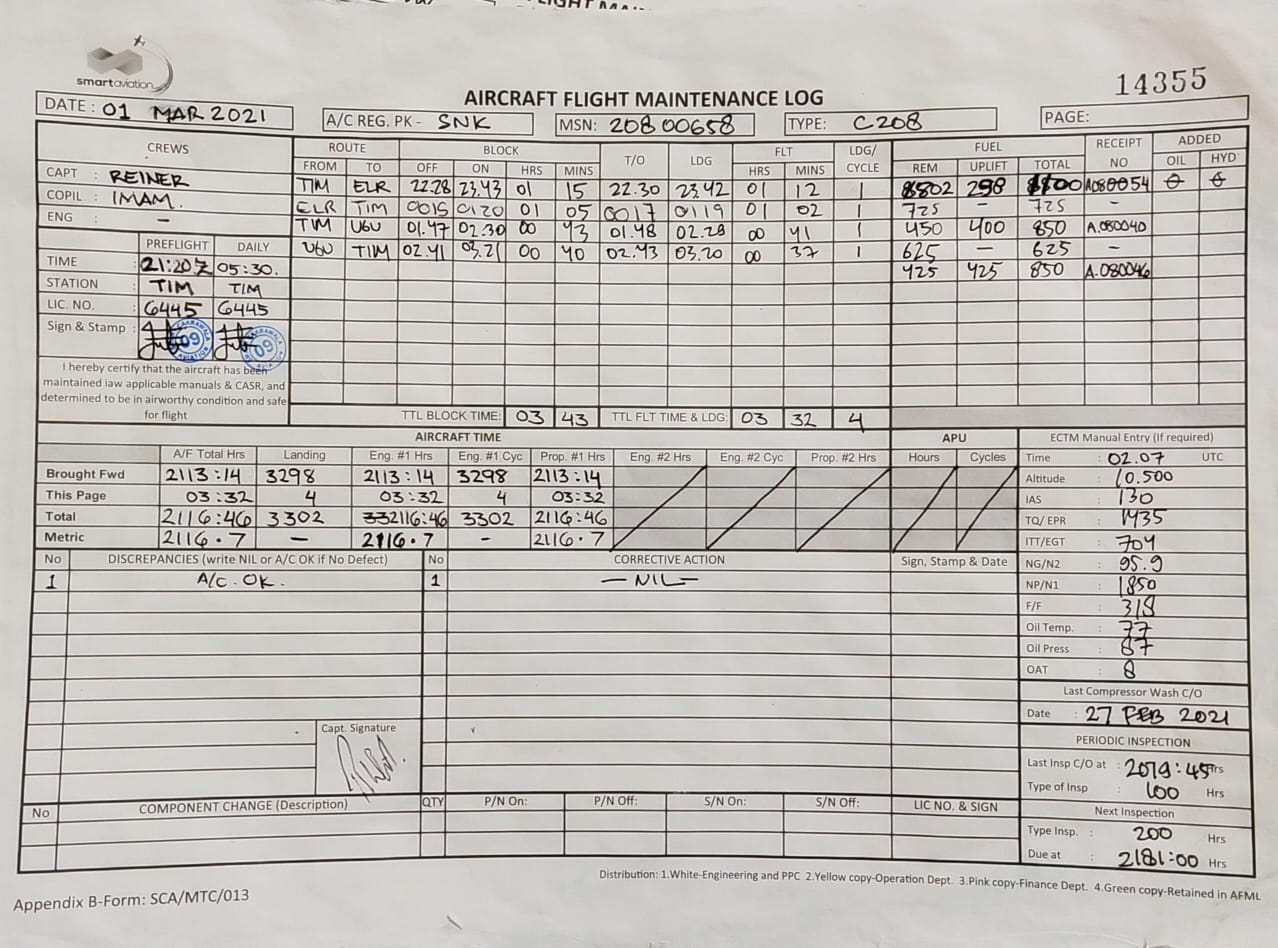 smartaviation
14355
AIRCRAFT FLIGHT MAINTENANCE LOG
DATE : 01 MAR 2021
A/C REG. PK - SNK
MSN: 20800658
TYPE: C208
PAGE:
CREWS
ROUTE BLOCK T/O LDG FLT LDG/ CYCLE FUEL RECEIPT NO ADDED
FROM TO OFF ON HRS MINS HRS MINS REM UPLIFT TOTAL OIL HYD
CAPT : REINER
COPIL : IMAM.
ENG : -
TIM ELR 22.28 23.43 01 15 22.30 23.42 01 12 1 298
ELR TIM 0015 0120 01 05 0017 0119 01 02 1 725 - 725 -
TIM UGU 01.47 02.30 00 43 01.48 02.29 00 41 1 450 400 850 A.080040
UGU TIM 02.41 03.21 00 40 02.43 03.20 00 37 1 625 - 625 -
425 425 850 A.080046
PREFLIGHT DAILY
TIME : 21:20 Z 05:30.
STATION : TIM TIM
LIC. NO. : 6445 6445
Sign & Stamp :
09
09
I hereby certify that the aircraft has been
maintained law applicable manuals & CASR, and
determined to be in airworthy condition and safe
for flight
TTL BLOCK TIME: 03 43 TTL FLT TIME & LDG: 03 32 4
AIRCRAFT TIME APU
A/F Total Hrs Landing Eng. #1 Hrs Eng. #1 Cyc Prop. #1 Hrs Eng. #2 Hrs Eng. #2 Cyc Prop. #2 Hrs Hours Cycles
Brought Fwd 2113:14 3298 2113:14 3298 2113:14
This Page 03:32 4 03:32 4 03:32
Total 2116:46 3302 2116:46 3302 2116:46
Metric 2116.7 - 2116.7 - 2116.7
ECTM Manual Entry (If required)
Time : 02.07 UTC
Altitude : 10.500
IAS : 130
TQ/ EPR : 1435
ITT/EGT : 704
NG/N2 : 95.9
NP/N1 : 1850
F/F : 318
Oil Temp. : 77
Oil Press : 87
OAT : 8
Last Compressor Wash C/O
Date : 27 FEB 2021
PERIODIC INSPECTION
Last Insp C/O at : 2079:45 Hrs
Type of Insp : 100 Hrs
Next Inspection
Type Insp. : 200 Hrs
Due at : 2181:00 Hrs
No DISCREPANCIES (write NIL or A/C OK if No Defect) No CORRECTIVE ACTION Sign, Stamp & Date
1 A/C. OK. 1 - NIL -
Capt. Signature
No COMPONENT CHANGE (Description) QTY P/N On: P/N Off: S/N On: S/N Off: LIC NO. & SIGN
Distribution: 1.White-Engineering and PPC 2.Yellow copy-Operation Dept. 3.Pink copy-Finance Dept. 4.Green copy-Retained in AFML
Appendix B-Form: SCA/MTC/013